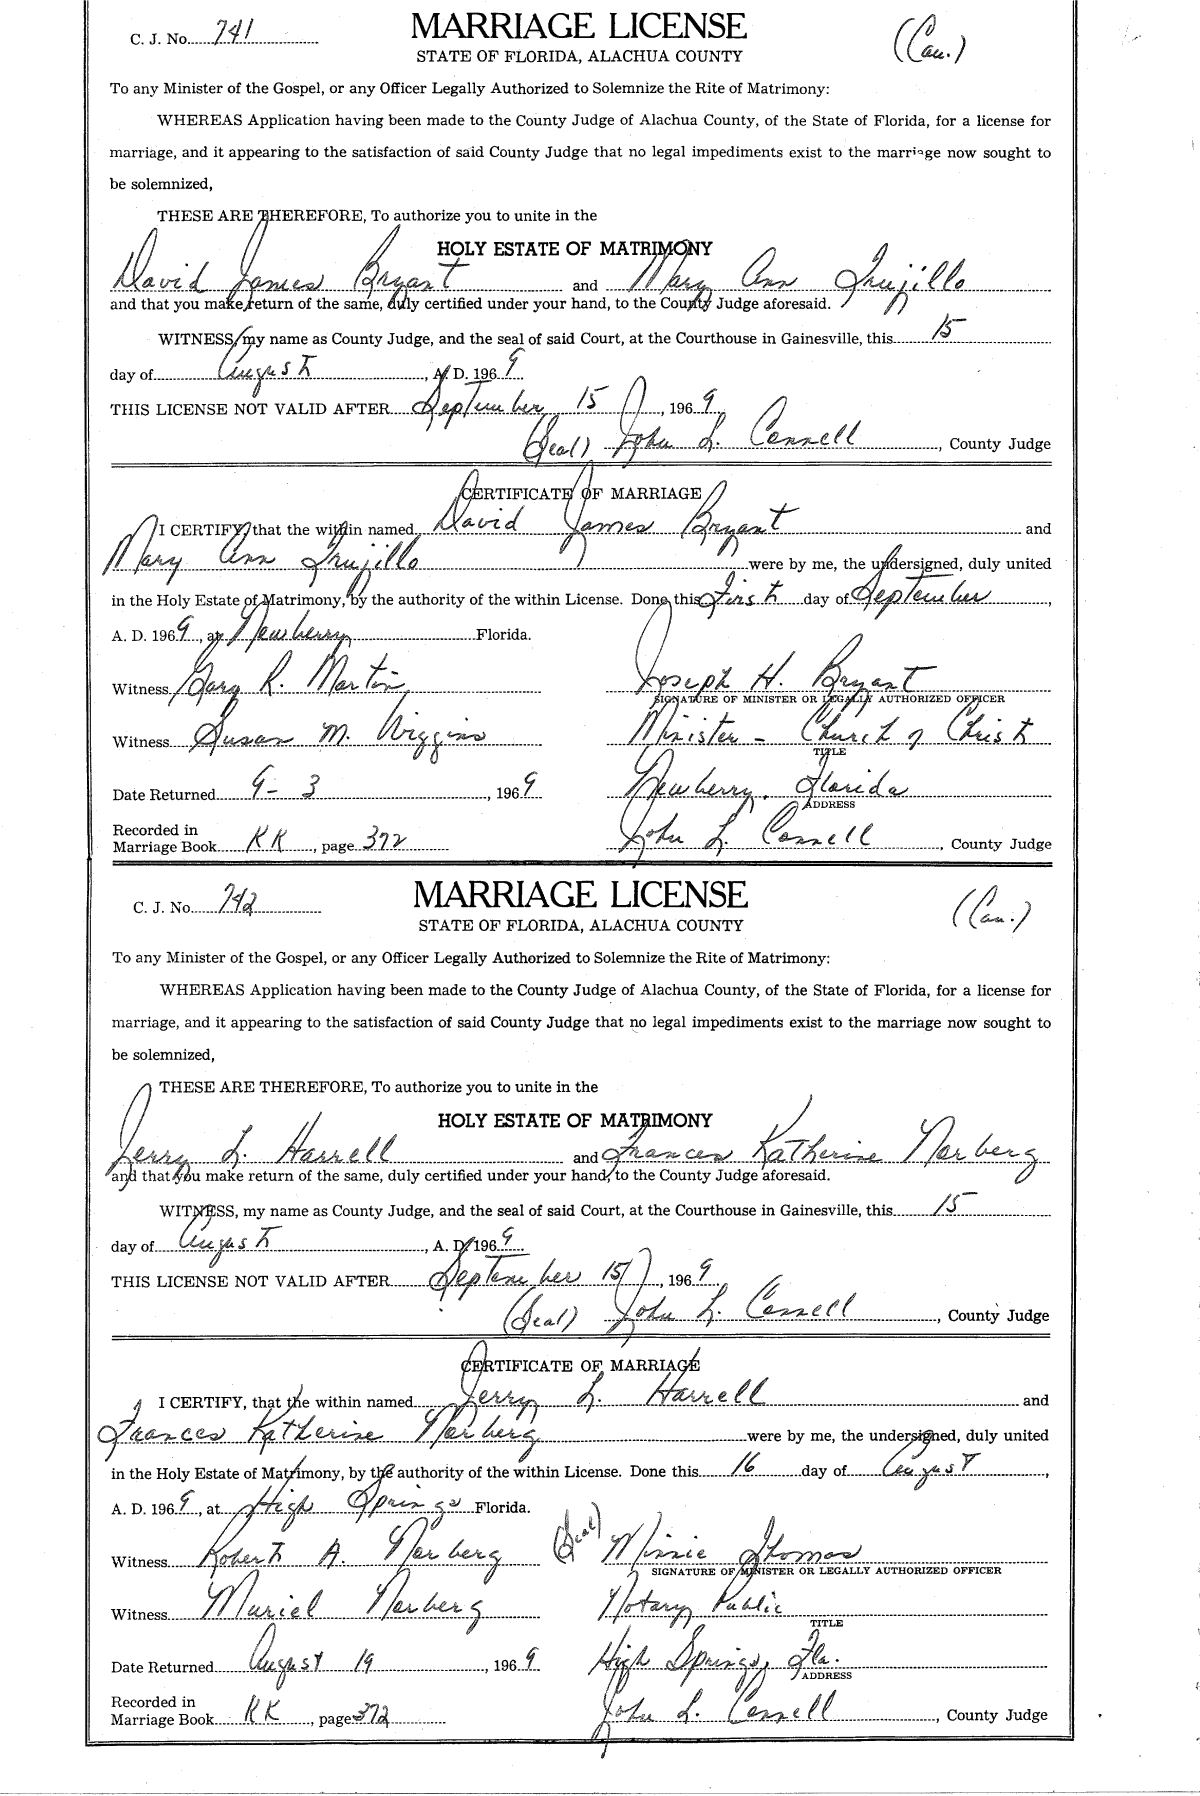 C. J. No. 741
MARRIAGE LICENSE
(Cau.)
STATE OF FLORIDA, ALACHUA COUNTY
To any Minister of the Gospel, or any Officer Legally Authorized to Solemnize the Rite of Matrimony:
WHEREAS Application having been made to the County Judge of Alachua County, of the State of Florida, for a license for
marriage, and it appearing to the satisfaction of said County Judge that no legal impediments exist to the marriage now sought to
be solemnized,
THESE ARE THEREFORE, To authorize you to unite in the
HOLY ESTATE OF MATRIMONY
David James Bryant and Mary Ann Trujillo
and that you make return of the same, duly certified under your hand, to the County Judge aforesaid.
WITNESS, my name as County Judge, and the seal of said Court, at the Courthouse in Gainesville, this 15
day of August, A. D. 1969
THIS LICENSE NOT VALID AFTER September 15, 1969
(Seal) John L. Connell, County Judge
CERTIFICATE OF MARRIAGE
I CERTIFY, that the within named David James Bryant and
Mary Ann Trujillo were by me, the undersigned, duly united
in the Holy Estate of Matrimony, by the authority of the within License. Done this First day of September,
A. D. 1969, at Newberry Florida.
Witness Gary R. Martin Joseph H. Bryant
SIGNATURE OF MINISTER OR LEGALLY AUTHORIZED OFFICER
Witness Susan M. Wiggins Minister - Church of Christ
TITLE
Date Returned 9-3, 1969 Newberry, Florida
ADDRESS
Recorded in
Marriage Book KK, page 372 John L. Connell, County Judge
C. J. No. 742
MARRIAGE LICENSE
(Cau.)
STATE OF FLORIDA, ALACHUA COUNTY
To any Minister of the Gospel, or any Officer Legally Authorized to Solemnize the Rite of Matrimony:
WHEREAS Application having been made to the County Judge of Alachua County, of the State of Florida, for a license for
marriage, and it appearing to the satisfaction of said County Judge that no legal impediments exist to the marriage now sought to
be solemnized,
THESE ARE THEREFORE, To authorize you to unite in the
HOLY ESTATE OF MATRIMONY
Jerry L. Harrell and Frances Katherine Norberg
and that you make return of the same, duly certified under your hand, to the County Judge aforesaid.
WITNESS, my name as County Judge, and the seal of said Court, at the Courthouse in Gainesville, this 15
day of August, A. D. 1969
THIS LICENSE NOT VALID AFTER September 15, 1969
(Seal) John L. Connell, County Judge
CERTIFICATE OF MARRIAGE
I CERTIFY, that the within named Jerry L. Harrell and
Frances Katherine Norberg were by me, the undersigned, duly united
in the Holy Estate of Matrimony, by the authority of the within License. Done this 16 day of August,
A. D. 1969, at High Springs Florida.
Witness Robert A. Norberg (Seal) Minnie Thomas
SIGNATURE OF MINISTER OR LEGALLY AUTHORIZED OFFICER
Witness Muriel Norberg Notary Public
TITLE
Date Returned August 19, 1969 High Springs, Fla.
ADDRESS
Recorded in
Marriage Book KK, page 372 John L. Connell, County Judge